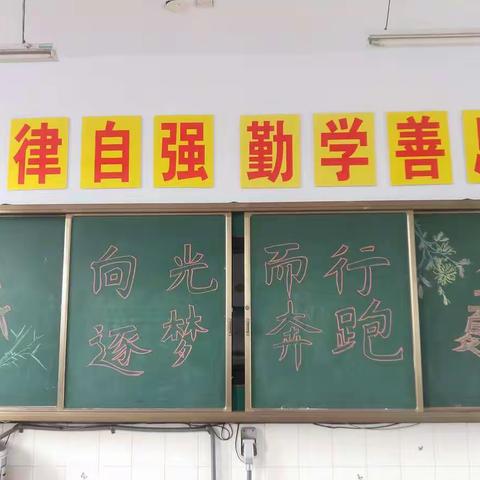 律自强 勤学善
向光而行
逐梦奔跑
夏